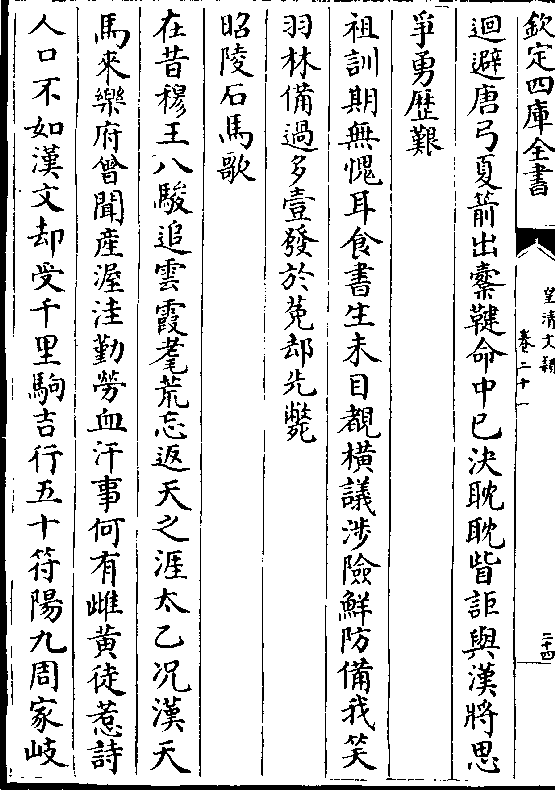 欽定四庫全書
皇清文穎
卷二十一
二十四
迴避唐弓夏箭出櫜鞬命中已決耽耽眥詎與漢將思
爭勇歷艱
祖訓期無愧耳食書生未目覩橫議涉險鮮防備我笑
羽林備過多壹發於菟却先斃
昭陵石馬歌
在昔穆王八駿追雲霞耄荒忘返天之涯太乙况漢天
馬來樂府曾聞産渥洼勤勞血汗事何有雌黄徒惹詩
人口不如漢文却受千里駒吉行五十符陽九周家岐